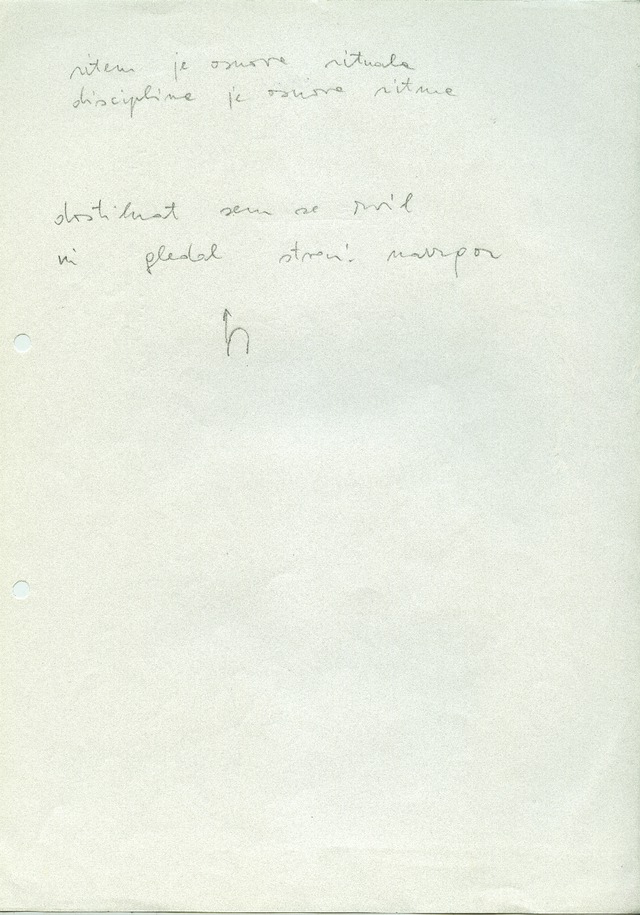 ritem je osnova rituala
disciplina je osnova ritma
dostikrat sem se zvil
in gledal stvari navzgor